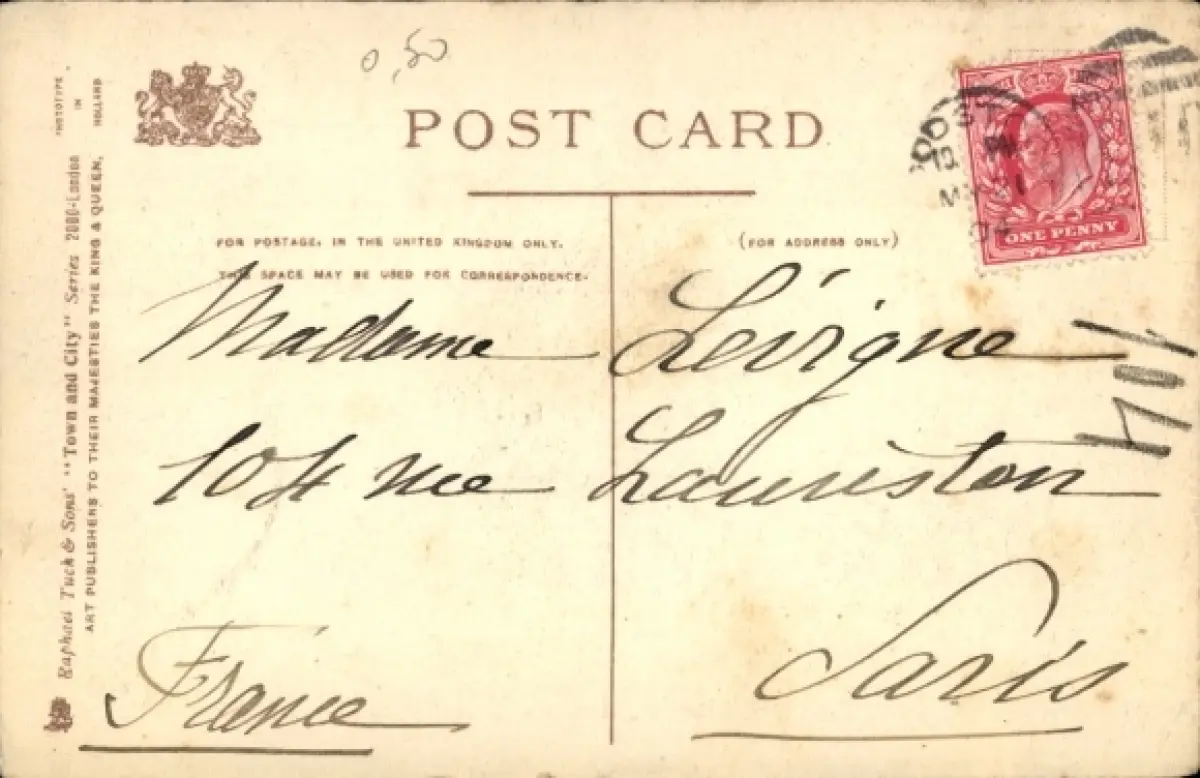 0,50
POST CARD
FOR POSTAGE, IN THE UNITED KINGDOM ONLY,
THIS SPACE MAY BE USED FOR CORRESPONDENCE.
(FOR ADDRESS ONLY)
ONE PENNY
POST
MY 21
04
Madame Lévigne
104 rue Lauriston
Paris
France
Raphael Tuck & Sons' "Town and City" Series 2000-London
ART PUBLISHERS TO THEIR MAJESTIES THE KING & QUEEN.
PHOTOTYPE IN HOLLAND